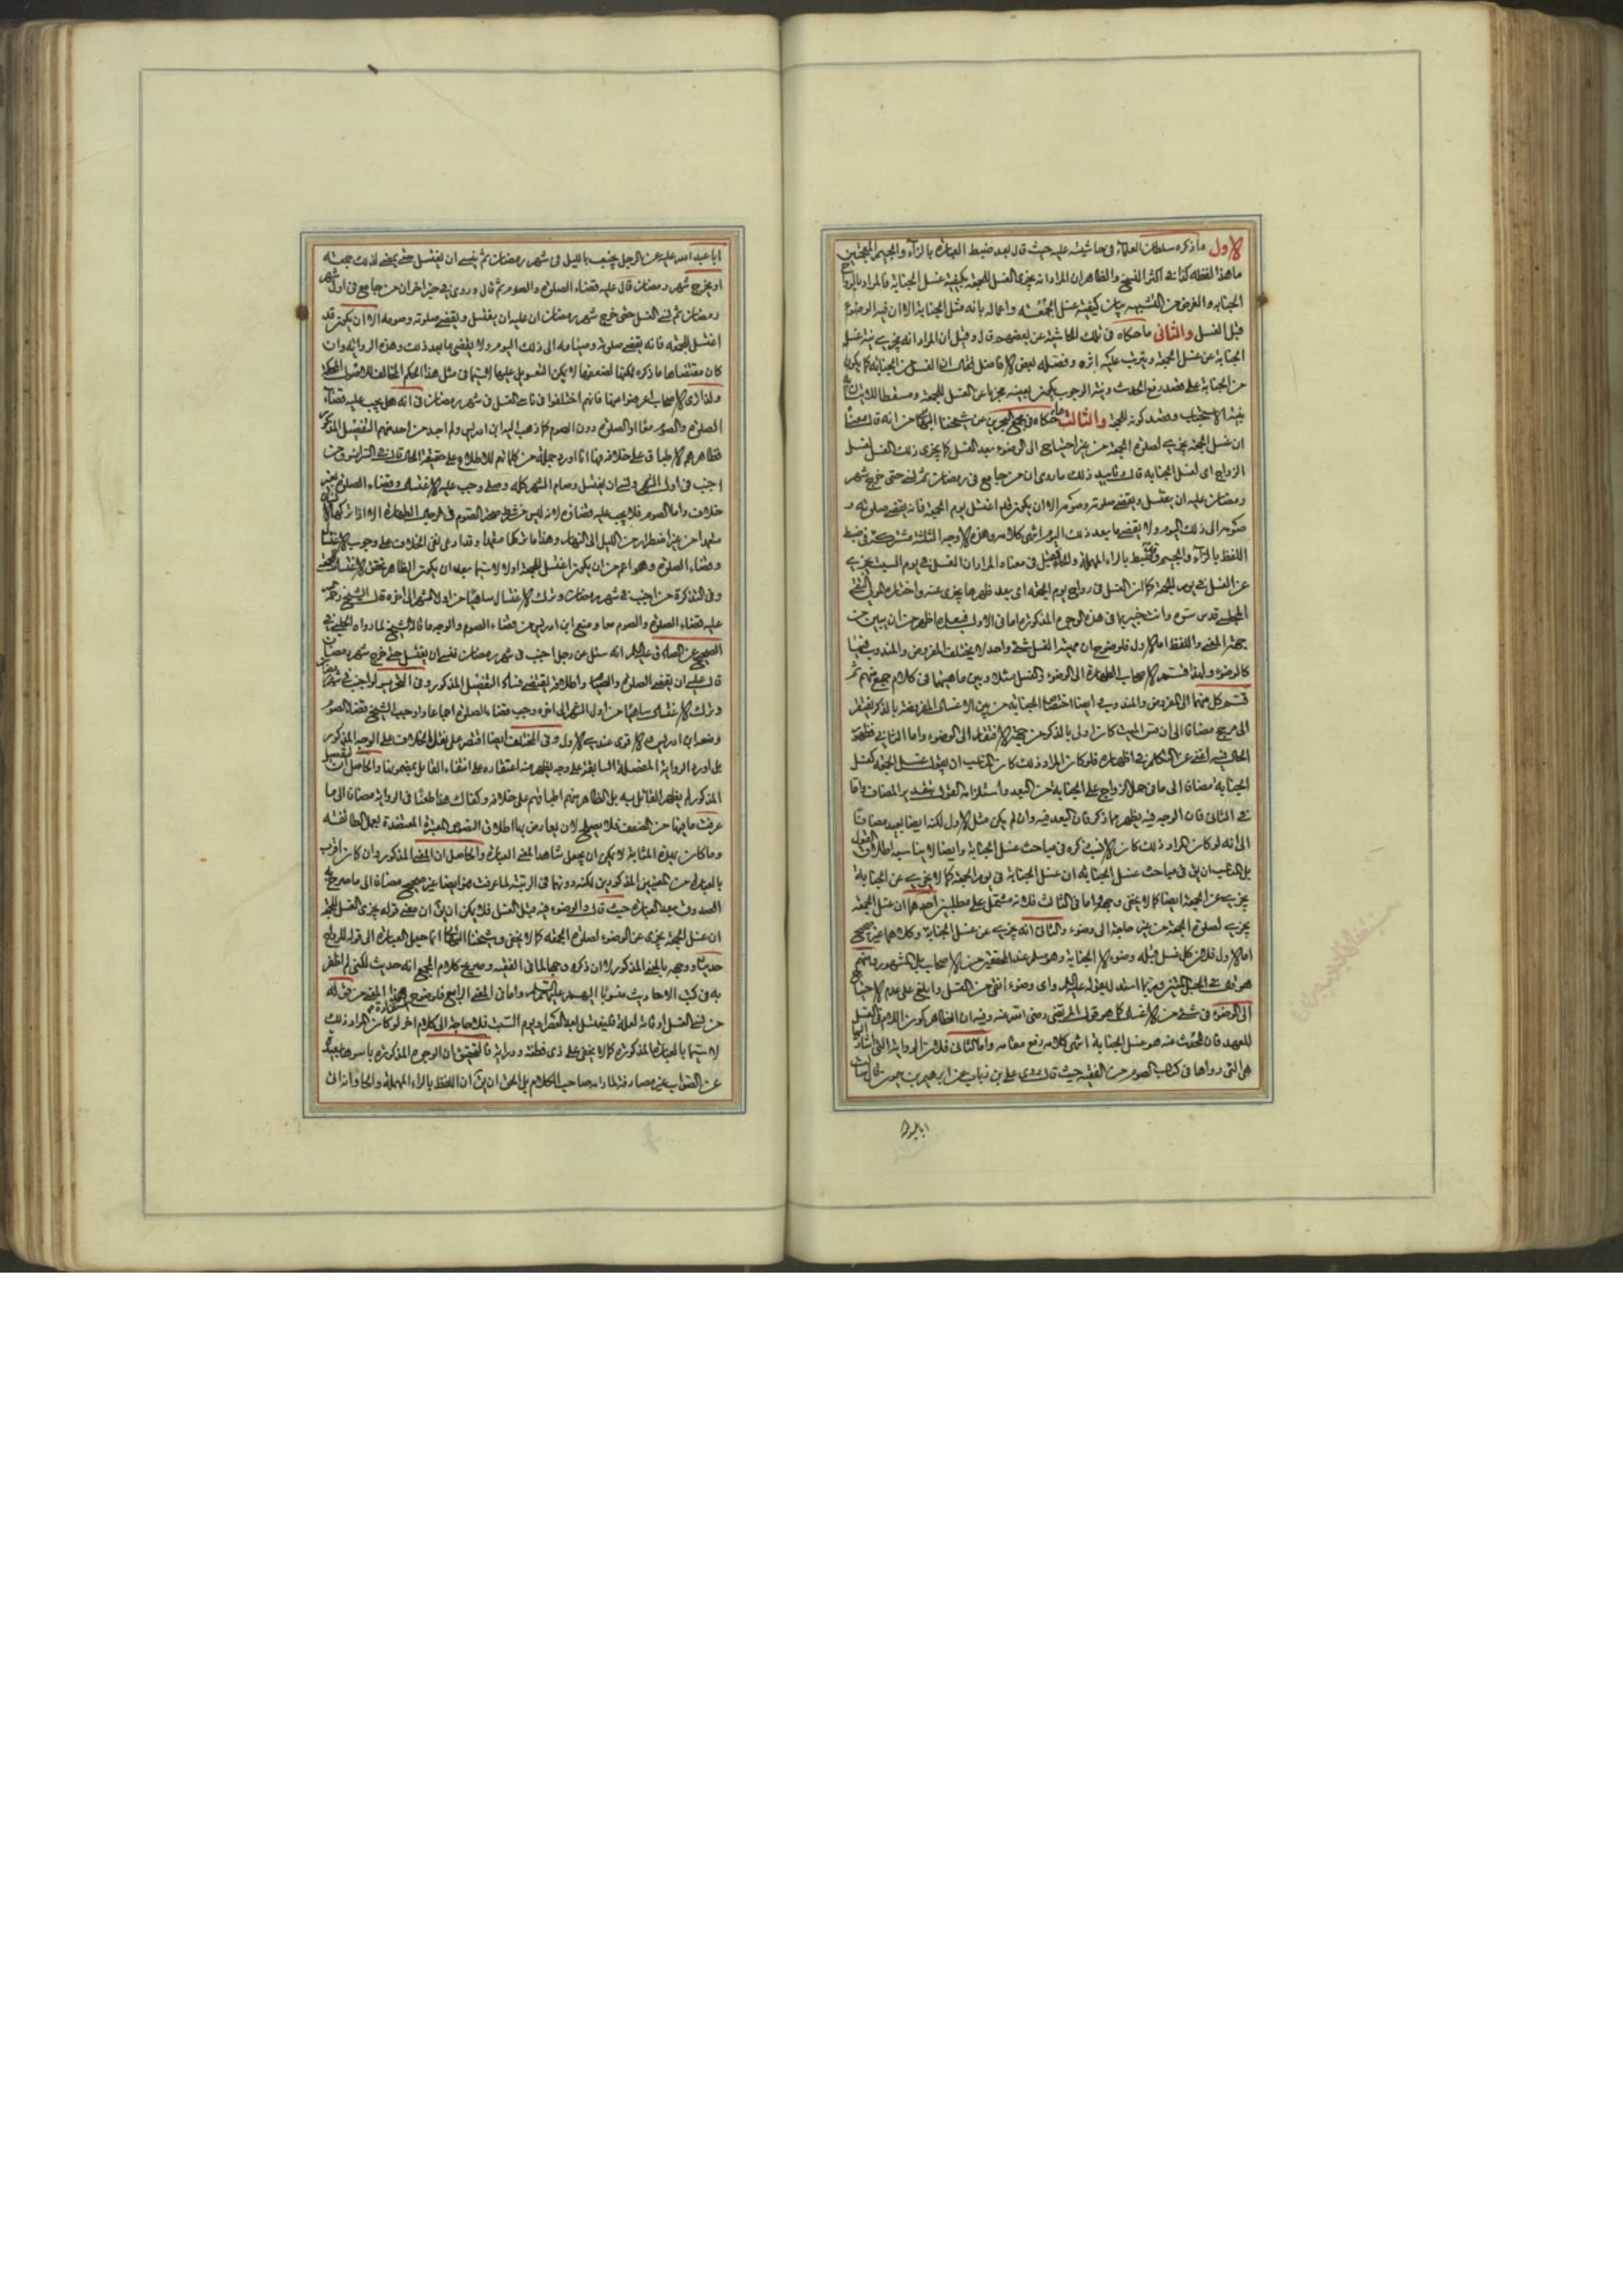 الاول ما ذكره سلطان العلماء فى حاشيته عليه حيث قال بعد ضبط العبارة بالزاء والجيم المعجمتين
ما هذا لفظه كذا فى اكثر النسخ والظاهر ان المراد انه يجزى الغسل للجمعة بكيفية غسل الجنابة فالمراد بالزواج
الجنابه والغرض من التشبيه بيان كيفية غسل الجمعه واعماله بانه مثل الجنابة الا ان فيه الوضوء
قبل الغسل والثانى ما حكاه فى تلك الحاشية عن بعضهم قال وقيل ان المراد انه يجزى نية غسل
الجنابه عن غسل الجمعة ويترتب عليه اثره وفصله بعض الافاضل فقال ان الغسل من الجنابه كما يكون
من الجنابة على قصد رفع الحدث ونية الوجوب يكون بعينه مجزيا عن الغسل للجمعة ومسقطا للاتيان به
بنية الاستحباب وقصد كونه للجمعة والثالث ما حكاه فى مجمع البحرين عن شيخنا البهائى من انه قال معناه
ان غسل الجمعة يجزى لصلوة الجمعة من غير احتياج الى الوضوء بعد الغسل كما يجزى ذلك الغسل لغسل
الزواج اى لغسل الجنابه قال وتاييد ذلك ما روى ان من جامع فى رمضان ثم نسى حتى خرج شهر
رمضان عليه ان يغتسل ويقضى صلوته وصومه الا ان يكون قد اغتسل يوم الجمعة فانه يقضى صلوته و
صومه الى ذلك اليوم ولا يقضى ما بعد ذلك اليوم انتهى كلامه وهذه الاوجه الثلثة مشتركة فى ضبط
اللفظ بالزاء والجيم وقد يضبط بالراء المهملة والحاء فقيل فى معناه المراد ان الغسل فى يوم السبت يجزى
عن الغسل فى يوم الجمعة كما ان الغسل فى رواح يوم الجمعه اى بعد ظهرها يجزى عنه واختاره المولى التقى
المجلسى قدس سره وانت خبير بما فى هذه الوجوه المذكورة اما فى الاول فبعده اظهر من ان يبين من
جهة المعنى واللفظ اما الاول فلوضوح ان مهية الغسل شئ واحد لا يختلف المفروض والمندوب فيها
كالوضوء ولهذا قسم الاصحاب الطهارة الى الوضوء والغسل مثلا وبين ماهيتهما فى كلام جميع منهم ثم
قسم كل منهما الى المفروض والمندوب وايضا اختصاص الجنابه من بين الاغسال المفروضة بالذكر يفتقر
الى مرجح مضافا الى ان مس الميت كان اولى بالذكر من جهة الافتقار الى الوضوء واما الثانى فظهور
الحال فيه اغنى عن التكلم فى اظهاره فلو كان المراد ذلك كان المناسب ان يقول غسل الجمعه كغسل
الجنابة مضافا الى ما فى حمل الزواج على الجنابة من البعد واستلزامه القول بتقدير المضاف واما
فى الثانى فان الوجه فيه يظهر مما ذكر فان البعد فيه وان لم يكن مثل الاول لكنه ايضا بعيد مضافا
الى انه لو كان المراد ذلك كان الانسب ذكره فى مباحث غسل الجنابة وايضا لا يناسبه اطلاق القول
بل المناسب ان يق فى مباحث غسل الجنابه ان غسل الجنابة فى يوم الجمعة كما يجزى عن الجنابة
يجزى عن الجمعة ايضا كما لا يخفى وجهه واما فى الثالث فلانه مشتمل على مطلبين احدهما ان غسل الجمعة
يجزى لصلوة الجمعة من غير حاجة الى وضوء والثانى انه يجزى عن غسل الجنابة وكلاهما غير صحيح
اما الاول فلان كل غسل قبله وضوء الا الجنابة وهو مسلم عند المحققين من الاصحاب بل المشهور بينهم
الى الوضوء فى شئ من الاغسال كما هو قول المرتضى رضى الله عنه وفيه ان الظاهر كون اللام فى الغسل
للعهد فان المبحوث عنه هو غسل الجنابة انتهى كلامه رفع مقامه واما الثانى فلان الرواية التى اشار اليها
هى التى رواها فى كتاب الصوم من الفقيه حيث قال روى على بن رئاب عن ابرهيم بن ميمون قال سالت
ابا عبد الله
ابا عبد الله عليه عن الرجل يجنب بالليل فى شهر رمضان ثم ينسى ان يغتسل حتى يمضى لذلك جمعه
او يخرج شهر رمضان قال عليه قضاء الصلوة والصوم ثم قال وروى فى خبر اخر ان من جامع فى اول شهر
رمضان ثم نسى الغسل حتى خرج شهر رمضان ان عليه ان يغتسل ويقضى صلوته وصومه الا ان يكون قد
اغتسل للجمعه فانه يقضى صلوته وصيامه الى ذلك اليوم ولا يقضى ما بعد ذلك وهذه الرواية وان
كان مقتضاها ما ذكره لكنها لضعفها لا يمكن التعويل عليها لا سيما فى مثل هذا الحكم المخالف للاصول المحكمة
ولذا ترى الاصحاب اعرضوا عنها فانهم اختلفوا فى ناسى الغسل فى شهر رمضان فى انه هل يجب عليه قضاء
الصلوة والصوم معا او الصلوة دون الصوم كما ذهب اليه ابن ادريس ولم اجد من احد منهم التفصيل المذكور
فظاهرهم الاطباق على خلافه وها انا اورد جملة من كلماتهم للاطلاع على حقيقة الحال قال فى السرائر ومن
اجنب فى اول الشهر ونسى ان يغتسل وصام الشهر كله وصلى وجب عليه الاغتسال وقضاء الصلوة بغير
خلاف واما الصوم فلا يجب عليه قضاؤه لانه ليس من شرط صحة الصوم فى الرجل الطهارة الا اذا تركها الانسان
متعمدا من غير اضطرار من الليل الى النهار وهذا ما تركها متعمدا وقد ادعى نفى الخلاف على وجوب الاغتسال
وقضاء الصلوة وهو اعم من ان يكون اغتسل للجمعة اولا لا سيما بعد ان يكون الظاهر تحقق الاغتسال للجمعة
وفى التذكرة من اجنب فى شهر رمضان وترك الاغتسال ساهيا من اول الشهر الى اخره قال الشيخ رحمه
عليه قضاء الصلوة والصوم معا ومنع ابن ادريس من قضاء الصوم والوجه ما قاله الشيخ لما رواه الحلبى فى
الصحيح عن الصادق عليه السلام انه سئل عن رجل اجنب فى شهر رمضان فنسى ان يغتسل حتى خرج شهر رمضان
قال عليه ان يقضى الصلوة والصيام واطلاقه يقتضى فساد التفصيل المذكور وفى التحرير لو اجنب فى شهر رمضان
وترك الاغتسال ساهيا من اول الشهر الى اخره وجب قضاء الصلوة اجماعا واوجب الشيخ قضاء الصوم
ومنعه ابن ادريس والاقوى عندى الاول وفى المختلف ايضا اقتصر على نقل الخلاف على الوجه المذكور
بل اورد الرواية المفصلة السابقة على وجه يظهر منه اعتقاده على انتفاء القائل بمضمونها والحاصل ان التفصيل
المذكور لم يظهر القائل به بل الظاهر منهم اطباقهم على خلافه وكفاك هذا طعنا فى الرواية مضافا الى ما
عرفت ما فيها من الضعف فلا يصلح لان يعارض بها اطلاق النصوص المعتبرة المعتضدة بعمل الطائفه
وما كان بهذه المثابة لا يمكن ان يجعل شاهدا لمعنى العبارة والحاصل ان المعنى المذكور وان كان اقرب
بالعبارة من المعنيين المذكورين لكنه دونهما فى الرتبة لما عرفت وايضا غير صحيح مضافا الى ما صرح به
الصدوق بعد العبارة حيث قال والوضوء فيه قبل الغسل فلا يمكن ان يق ان معنى قوله يجزى الغسل للجمعة
ان غسل الجمعة يجزى عن الوضوء لصلوة الجمعه كما لا يخفى وشيخنا البهائى انما جعل العبارة الى قوله للرواح
حديثا ووجهه بالمعنى المذكور الا ان ذكره وجها لما فى الفقيه وصريح كلام المجمع انه حديث لكنى لم اظفر
به فى كتب الاحاديث منسوبا اليهم عليهم السلام واما فى المعنى الرابع فلوضوح استفادة هذا المعنى من قوله
من نسى الغسل او فاته لعلة فليغتسل بعد العصر او يوم السبت فلا حاجة الى كلام اخر لو كان المراد ذلك
لا سيما بالعبارة المذكورة كما لا يخفى على ذى فطنة ودراية فالتحقيق ان الوجوه المذكورة باسرها بعيدة
عن الصواب غير مصادفة لما رامه صاحب الكلام بل الحق ان يق ان اللفظ بالراء المهملة والحاء وانه انما